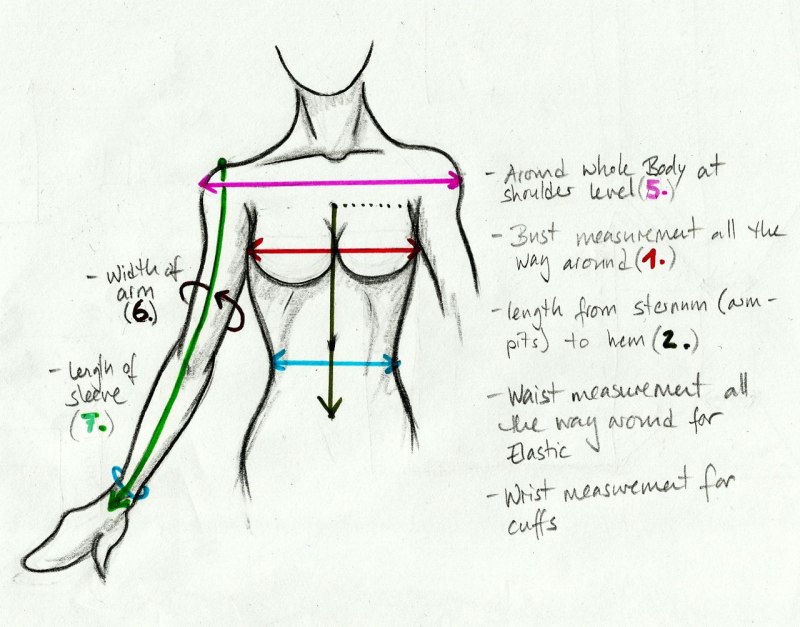 - Around whole Body at
shoulder level (5.)
- Bust measurement all the
way around (1.)
- length from sternum (arm-
pits) to hem (2.)
- Waist measurement all
the way around for
Elastic
- Wrist measurement for
cuffs
- Width of
arm
(6.)
- Length of
sleeve
(7.)